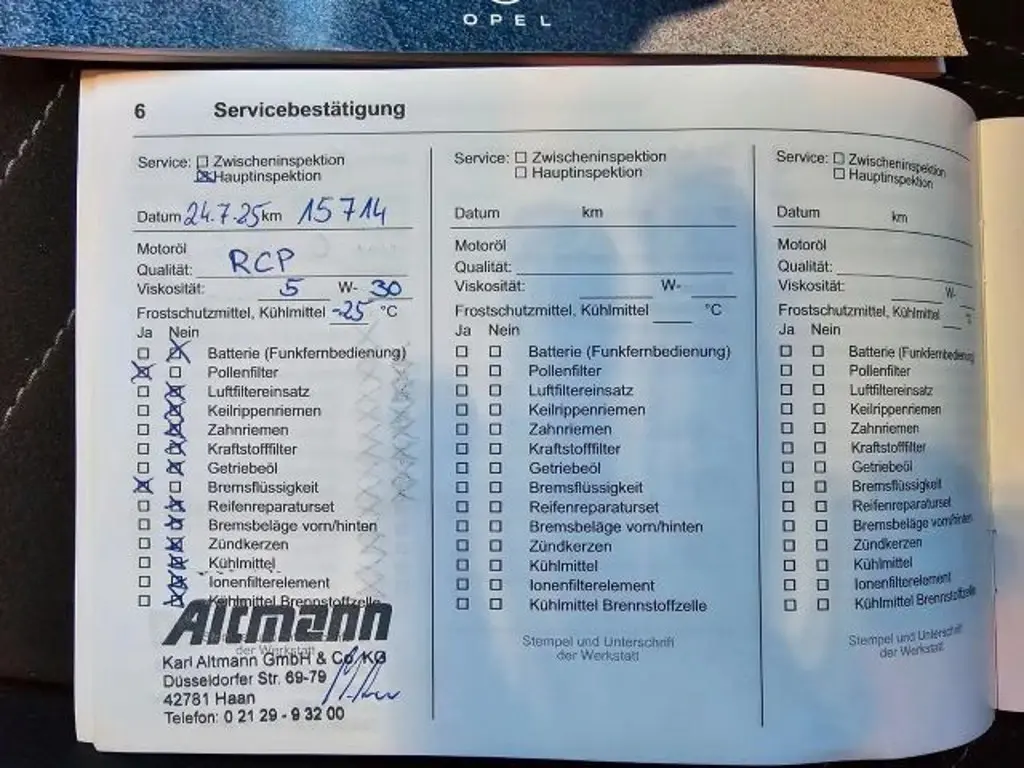 OPEL
6 Servicebestätigung
Service: Zwischeninspektion
Hauptinspektion
Datum 24.7.25 km 15714
Motoröl
Qualität: RCP
Viskosität: 5 W- 30
Frostschutzmittel, Kühlmittel -25 °C
Ja Nein
Batterie (Funkfernbedienung)
Pollenfilter
Luftfiltereinsatz
Keilrippenriemen
Zahnriemen
Kraftstofffilter
Getriebeöl
Bremsflüssigkeit
Reifenreparaturset
Bremsbeläge vorn/hinten
Zündkerzen
Kühlmittel
Ionenfilterelement
Kühlmittel Brennstoffzelle
Altmann
der Werkstatt
Karl Altmann GmbH & Co. KG
Düsseldorfer Str. 69-79
42781 Haan
Telefon: 0 21 29 - 9 32 00
Service: Zwischeninspektion
Hauptinspektion
Datum km
Motoröl
Qualität:
Viskosität: W-
Frostschutzmittel, Kühlmittel °C
Ja Nein
Batterie (Funkfernbedienung)
Pollenfilter
Luftfiltereinsatz
Keilrippenriemen
Zahnriemen
Kraftstofffilter
Getriebeöl
Bremsflüssigkeit
Reifenreparaturset
Bremsbeläge vorn/hinten
Zündkerzen
Kühlmittel
Ionenfilterelement
Kühlmittel Brennstoffzelle
Stempel und Unterschrift
der Werkstatt
Service: Zwischeninspektion
Hauptinspektion
Datum km
Motoröl
Qualität:
Viskosität: W-
Frostschutzmittel, Kühlmittel °C
Ja Nein
Batterie (Funkfernbedienung
Pollenfilter
Luftfiltereinsatz
Keilrippenriemen
Zahnriemen
Kraftstofffilter
Getriebeöl
Bremsflüssigkeit
Reifenreparaturset
Bremsbeläge vorn/hinten
Zündkerzen
Kühlmittel
Ionenfilterelement
Kühlmittel Brennstoffzelle
Stempel und Unterschrift
der Werkstatt